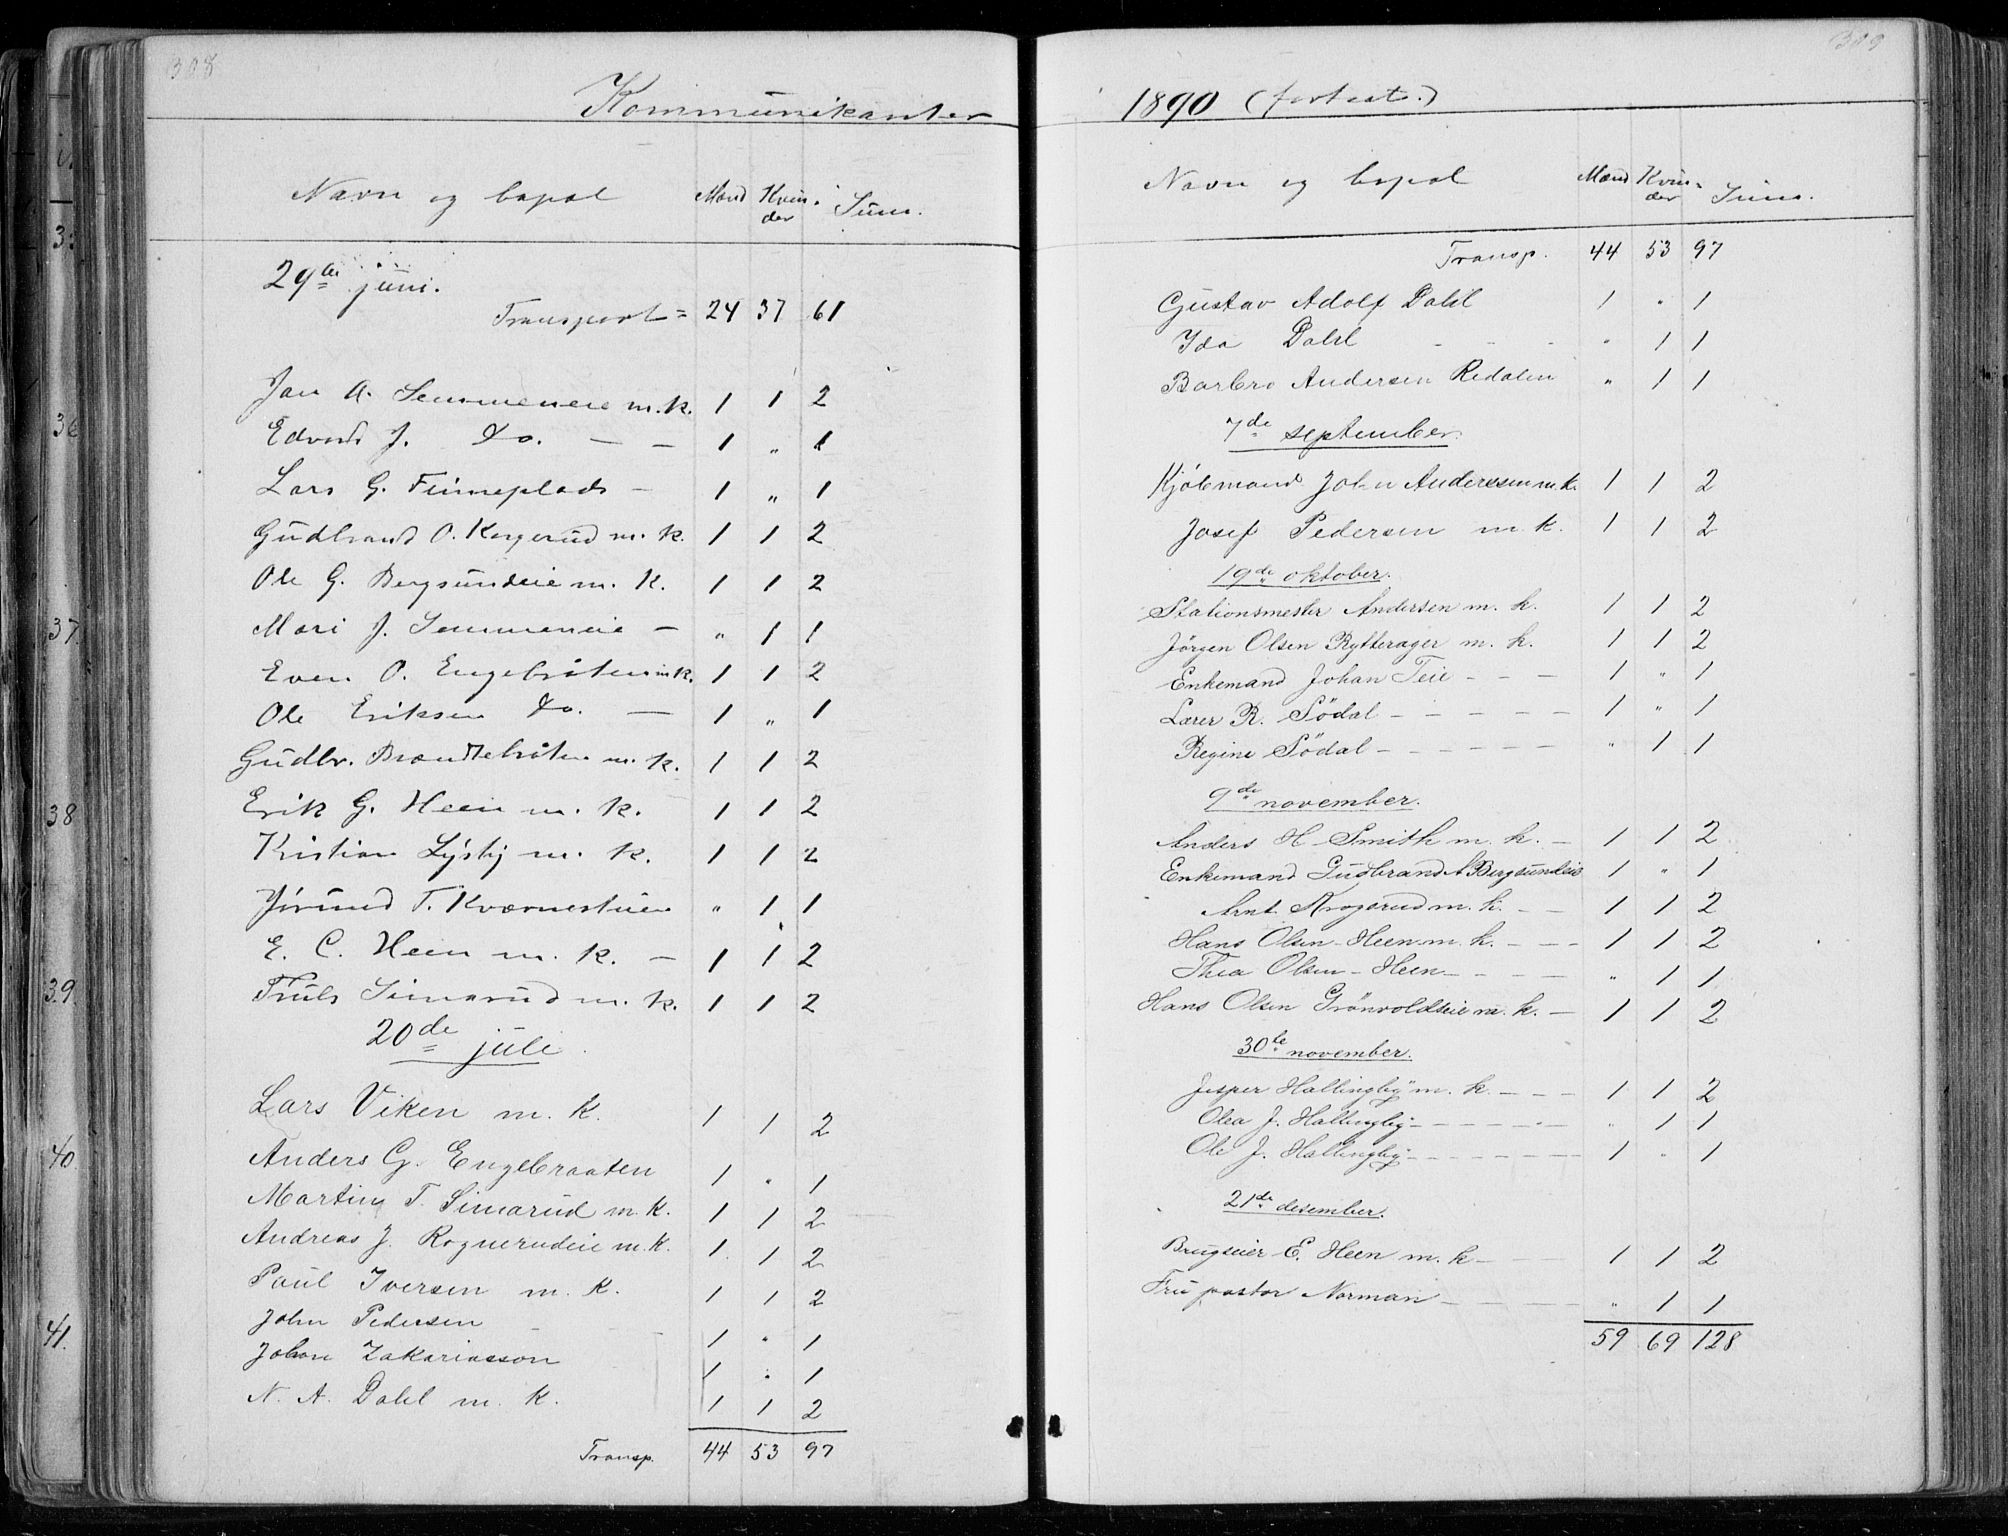 308
Kommunikanter
Navn og bopæl Mænd Kvinder Sum.
29de juni.
Transport = 24 37 61
Jan A. Semmeneie m. k. 1 1 2
Edvard J. Do. — — 1 " 1
Lars G. Finneplads — 1 " 1
Gudbrand O. Kragerud m. k. 1 1 2
Ole G. Bergsundeie m. k. 1 1 2
Mari J. Semmeneie — " 1 1
Even O. Engebråten m k. 1 1 2
Ole Eriksen Do. — 1 " 1
Gudbr. Brændtebråten m. k. 1 1 2
Erik G. Heen m. k. 1 1 2
Kristian Lysby m. k. 1 1 2
Jörund T. Kværnestuen " 1 1
E. C. Heen m. k. — 1 1 2
Truls Simarud m. k. 1 1 2
20de juli
Lars Viken m. k. 1 1 2
Anders G. Engebraaten 1 " 1
Martin T. Simarud m. k. 1 1 2
Andreas J. Rognerudeie m. k. 1 1 2
Paul Iversen m. k. 1 1 2
John Pedersen 1 " 1
Johan Zakariasson 1 " 1
N. A. Dahl m. k. 1 1 2
Transp. 44 53 97
309
1890 (fortsat.)
Navn og bopæl Mænd Kvinder Sum.
Transp. 44 53 97
Gustav Adolf Dahl 1 " 1
Ida Dahl - - - " 1 1
Barbro Andersen Redalen " 1 1
7de september.
Kjöbmand John Anderssen m. k. 1 1 2
Josef Pedersen m. k. 1 1 2
19de oktober.
Stationsmester Andersen m. k. 1 1 2
Jörgen Olsen Rytterager m. k. 1 1 2
Enkemand Johan Teie - - - 1 " 1
Lærer R. Södal - - - - - 1 " 1
Regine Södal - - - - - " 1 1
9de november.
Anders H Smith m. k. - 1 1 2
Enkemand Gudbrand A Bergsundeie 1 " 1
Arnt Krogerud m. k. - - 1 1 2
Hans Olsen Heen m. k. - - - 1 1 2
Thea Olsen Heen - - - - " 1 1
Hans Olsen Grönvoldseie m. k. - 1 1 2
30te november.
Jesper Hallingby m. k. - - - 1 1 2
Olea J. Hallingby - - - - - - " 1 1
Ole J. Hallingby - - - - - - - 1 " 1
21de desember.
Brugseier E. Heen m. k - - 1 1 2
Fru pastor Norman - - - - " 1 1
59 69 128